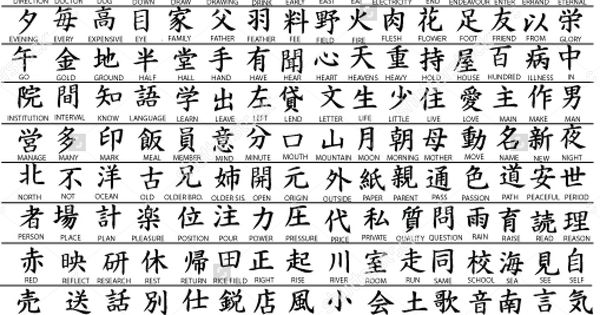 DOCTOR DOG DOWN DRAW DRAWING DRINK EARLY EAST EAT ELECTRICITY END ENDEAVOUR ENTER ERRAND ETERNAL
夕 毎 高 目 家 父 羽 料 野 火 肉 花 足 友 以 栄
EVENING EVERY EXPENSIVE EYE FAMILY FATHER FEATHER FEE FIELD FIRE FLESH FLOWER FOOT FRIEND FROM GLORY
午 金 地 半 堂 手 有 聞 心 天 重 持 屋 百 病 中
GO GOLD GROUND HALF HALL HAND HAVE HEAR HEART HEAVENS HEAVY HOLD HOUSE HUNDRED ILLNESS IN
院 間 知 語 学 出 左 貸 文 生 少 住 愛 主 作 男
INSTITUTION INTERVAL KNOW LANGUAGE LEARN LEAVE LEFT LEND LETTER LIFE LITTLE LIVE LOVE MAIN MAKE MAN
営 多 印 飯 員 意 分 口 山 月 朝 母 動 名 新 夜
MANAGE MANY MARK MEAL MEMBER MIND MINUTE MOUTH MOUNTAIN MOON MORNING MOTHER MOVE NAME NEW NIGHT
北 不 洋 古 兄 姉 開 元 外 紙 親 通 色 道 安 世
NORTH NOT OCEAN OLD OLDER BRO. OLDER SIS. OPEN ORIGIN OUTSIDE PAPER PARENT PASS PASSION PATH PEACEFUL PERIOD
者 場 計 楽 位 注 力 圧 代 私 質 問 雨 育 読 理
PERSON PLACE PLAN PLEASURE POSITION POUR POWER PRESSURE PRICE PRIVATE QUALITY QUESTION RAIN RAISE READ REASON
赤 映 研 休 帰 田 正 起 川 室 走 同 校 海 見 自
RED REFLECT RESEARCH REST RETURN RICE FIELD RIGHT RISE RIVER ROOM RUN SAME SCHOOL SEA SEE SELF
売 送 話 別 仕 鋭 店 風 小 会 土 歌 音 南 言 気